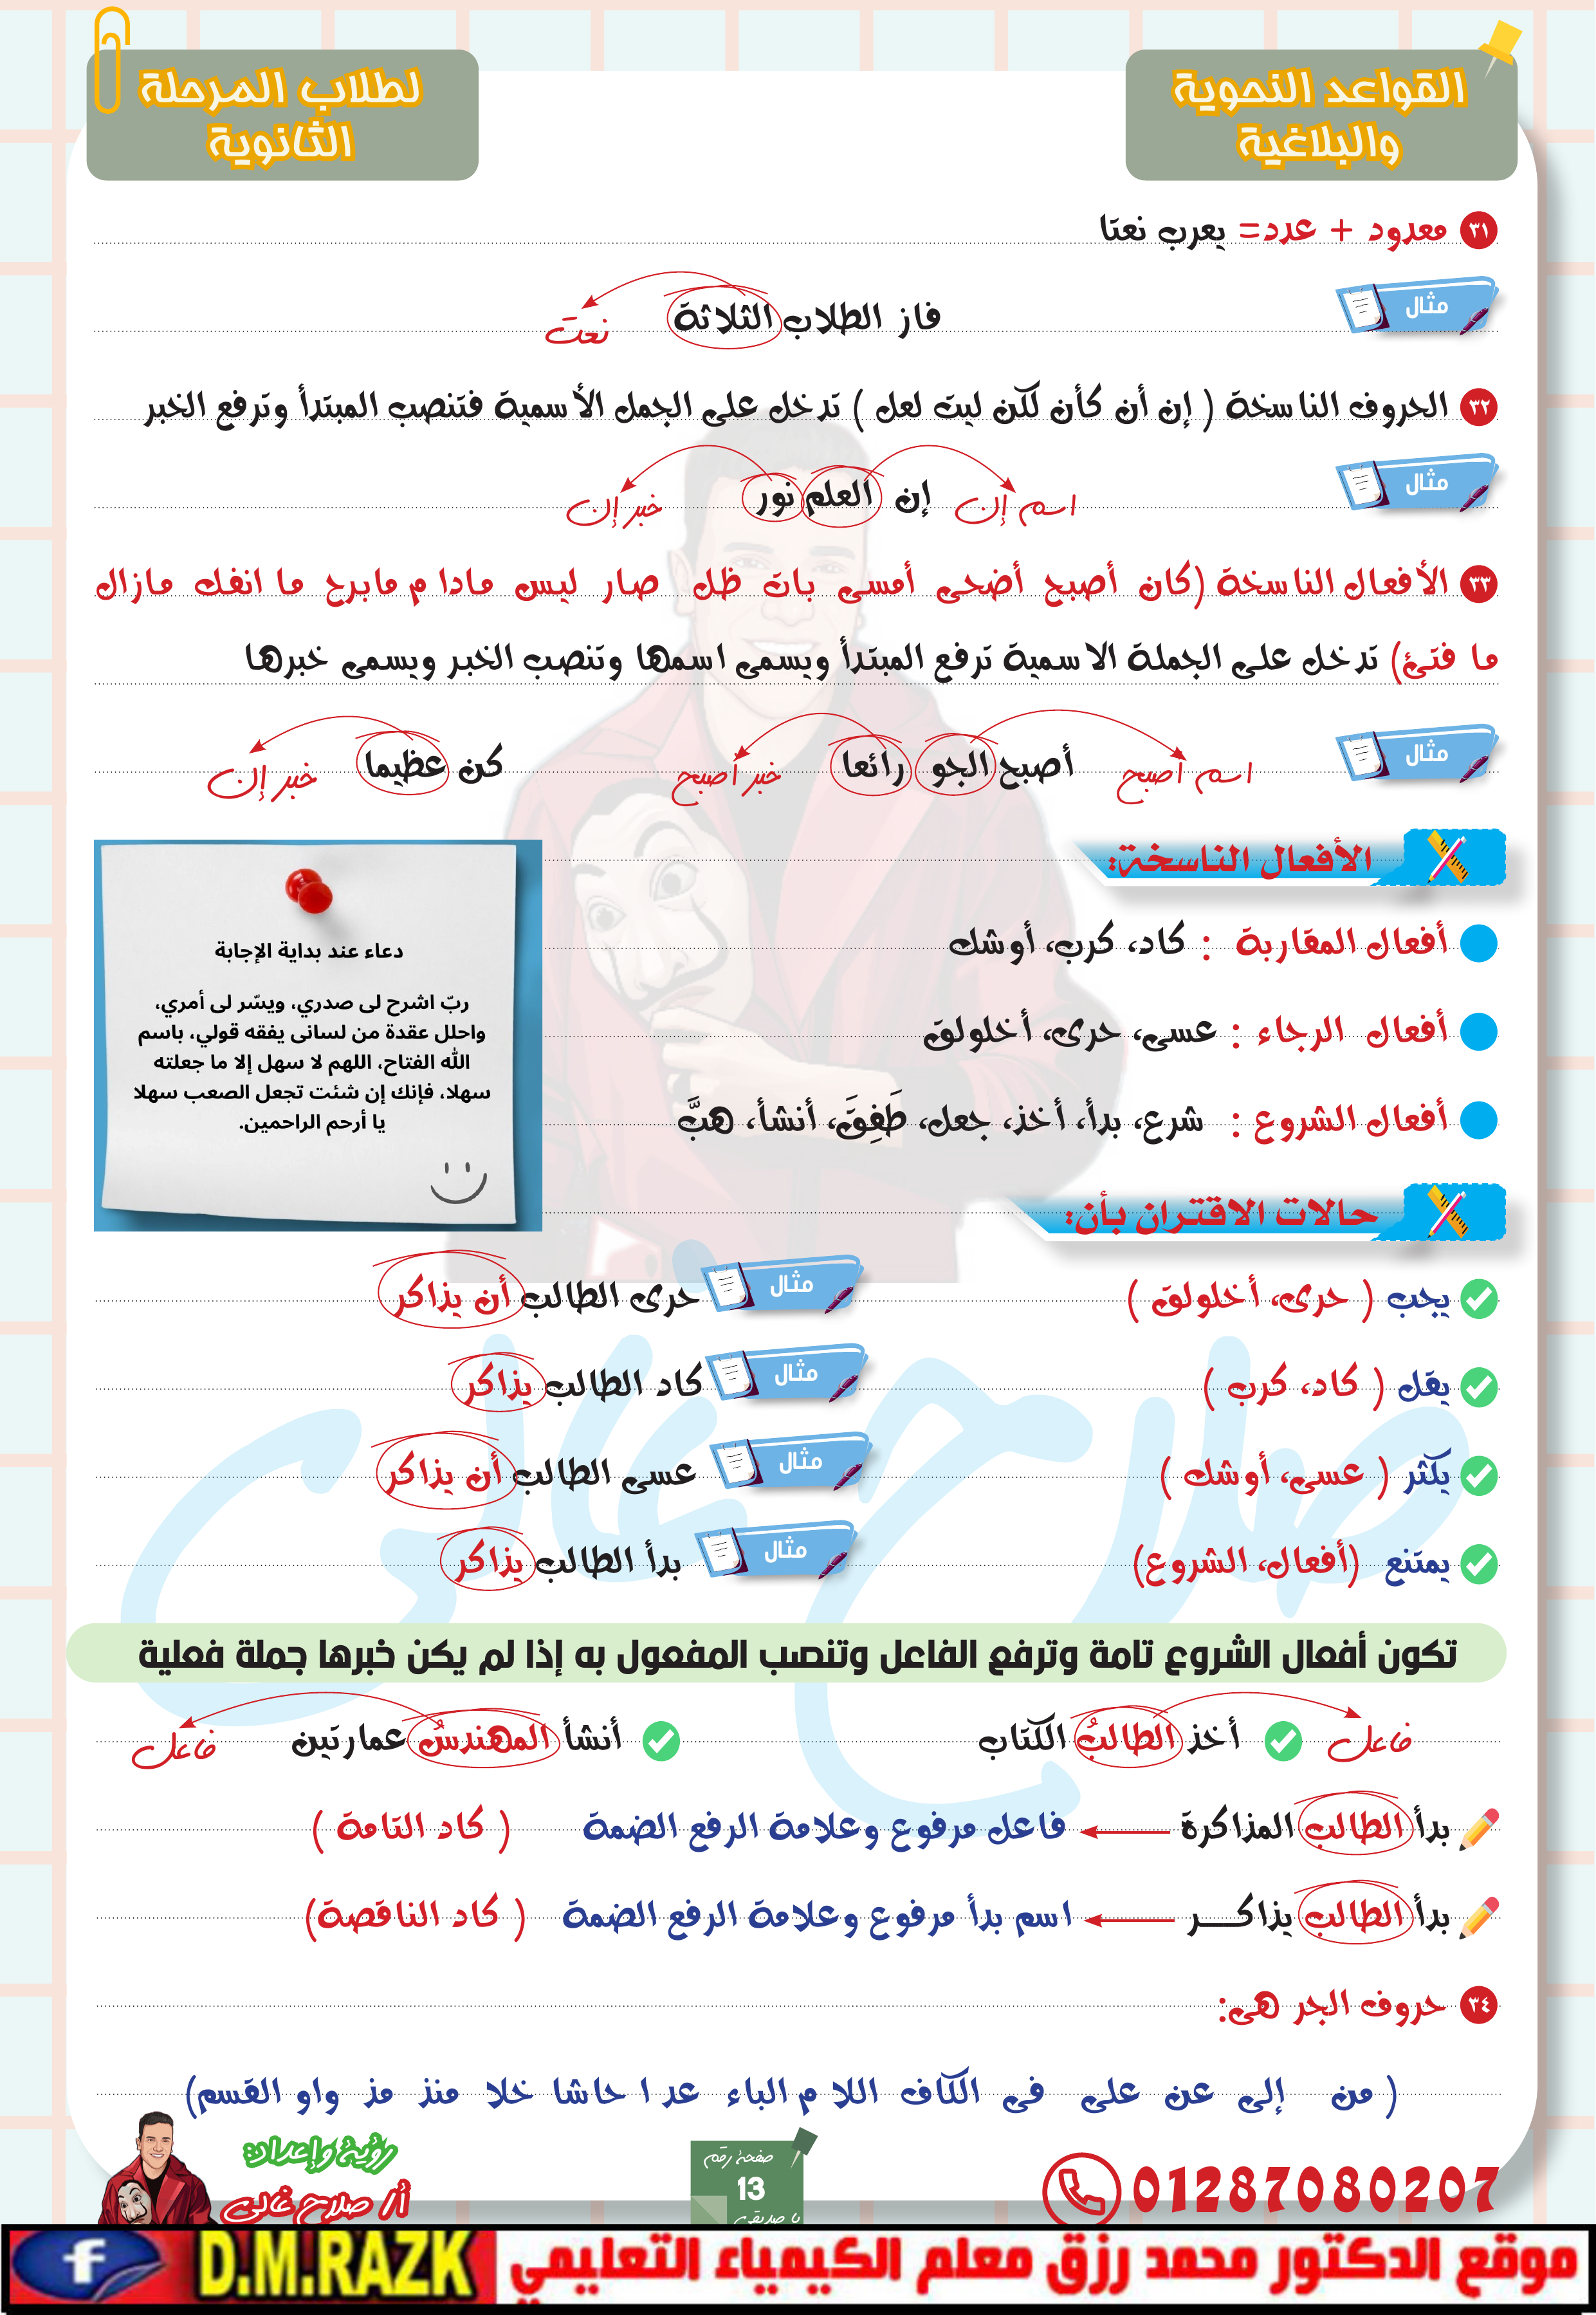 القواعد النحوية
والبلاغية
لطلاب المرحلة
الثانوية
٣١ معدود + عدد= يعرب نعتا
مثال
فاز الطلاب الثلاثة نعت
٣٢ الحروف الناسخة ( إن أن كأن لكن ليت لعل ) تدخل على الجمل الأسمية فتنصب المبتدأ وترفع الخبر
مثال
اسم إن إن العلم نور خبر إن
٣٣ الأفعال الناسخة (كان أصبح أضحى أمسى بات ظل صار ليس مادام مابرح ما انفك مازال
ما فتئ) تدخل على الجملة الاسمية ترفع المبتدأ ويسمى اسمها وتنصب الخبر ويسمى خبرها
مثال
اسم اصبح أصبح الجو رائعا خبر اصبح كن عظيما خبر إن
الأفعال الناسخة:
أفعال المقاربة : كاد، كرب، أوشك
أفعال الرجاء : عسى، حرى، أخلولق
أفعال الشروع : شرع، بدأ، أخذ، جعل، طَفِقَ، أنشأ، هبَّ
دعاء عند بداية الإجابة
ربّ اشرح لى صدري، ويسّر لى أمري،
واحلل عقدة من لسانى يفقه قولي، باسم
الله الفتاح، اللهم لا سهل إلا ما جعلته
سهلا، فإنك إن شئت تجعل الصعب سهلا
يا أرحم الراحمين.
حالات الاقتران بأن:
يجب ( حرى، أخلولق ) مثال حرى الطالب أن يذاكر
يقل ( كاد، كرب ) مثال كاد الطالب يذاكر
يكثر ( عسى، أوشك ) مثال عسى الطالب أن يذاكر
يمتنع (أفعال، الشروع) مثال بدأ الطالب يذاكر
تكون أفعال الشروع تامة وترفع الفاعل وتنصب المفعول به إذا لم يكن خبرها جملة فعلية
فاعل أخذ الطالبُ الكتاب أنشأ المهندسُ عمارتين فاعل
بدأ الطالب المذاكرة فاعل مرفوع وعلامة الرفع الضمة ( كاد التامة )
بدأ الطالب يذاكـــر اسم بدأ مرفوع وعلامة الرفع الضمة ( كاد الناقصة)
٣٤ حروف الجر هى:
( من إلى عن على فى الكاف اللام الباء عدا حاشا خلا منذ مذ واو القسم)
01287080207
صفحة رقم
13
يا صديقى
رؤية وإعداد:
أ/ صلاح غالى
صلاح غالى
موقع الدكتور محمد رزق معلم الكيمياء التعليمي D.M.RAZK f